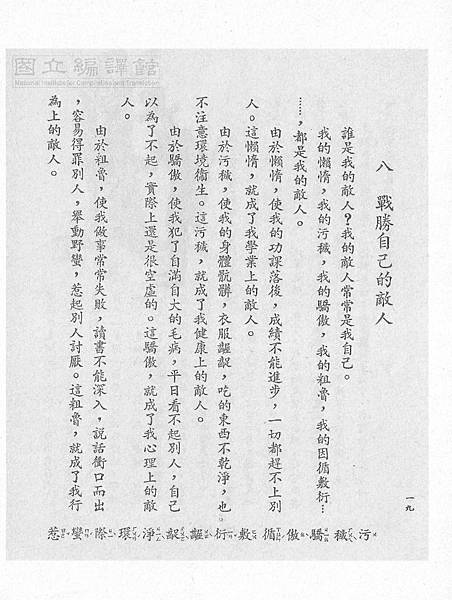 國立編譯館
National Institute for Compilation and Translation
八 戰勝自己的敵人
誰是我的敵人?我的敵人常常是我自己。
我的懶惰,我的污穢,我的驕傲,我的粗魯,我的因循敷衍…
……,都是我的敵人。
由於懶惰,使我的功課落後,成績不能進步,一切都趕不上別
人。這懶惰,就成了我學業上的敵人。
由於污穢,使我的身體骯髒,衣服齷齪,吃的東西不乾淨,也
不注意環境衛生。這污穢,就成了我健康上的敵人。
由於驕傲,使我犯了自滿自大的毛病,平日看不起別人,自己
以為了不起,實際上還是很空虛的。這驕傲,就成了我心理上的敵
人。
由於粗魯,使我做事常常失敗,讀書不能深入,說話衝口而出
,容易得罪別人,舉動野蠻,惹起別人討厭。這粗魯,就成了我行
為上的敵人。
一九
污穢驕傲循敷衍齷齪淨環際蠻惹